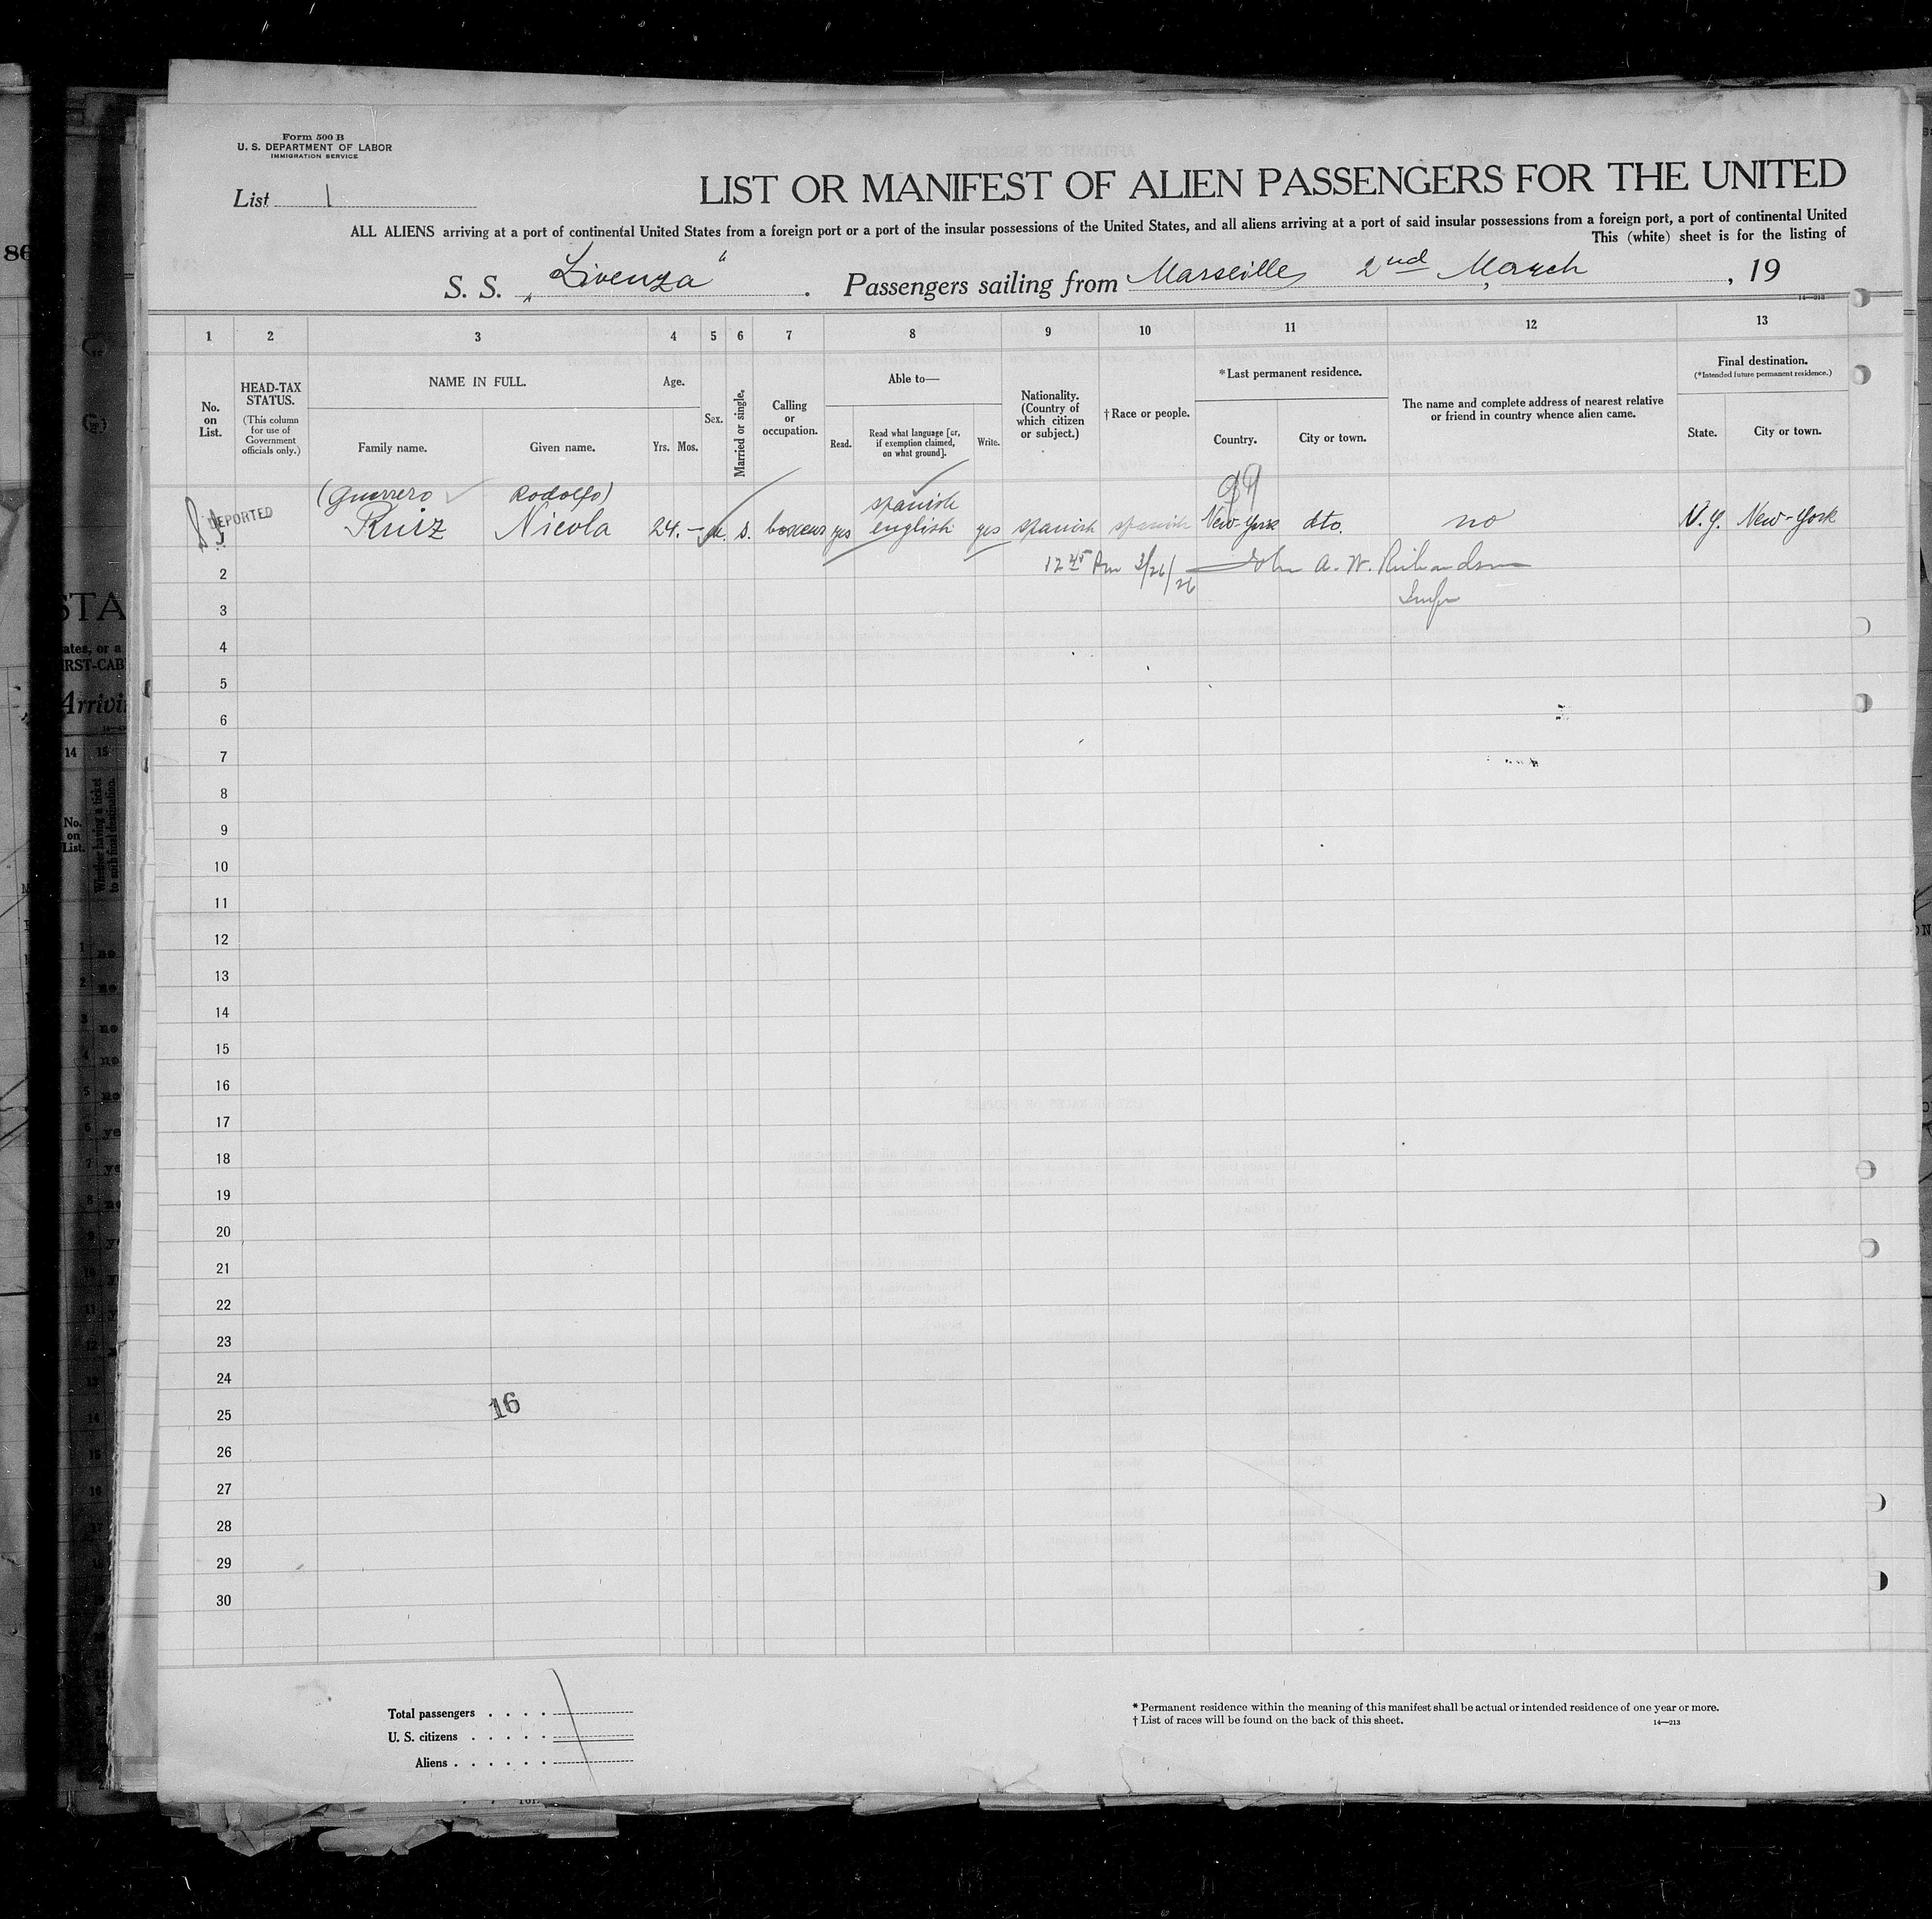 Form 500 B
U. S. DEPARTMENT OF LABOR
IMMIGRATION SERVICE
List 1
LIST OR MANIFEST OF ALIEN PASSENGERS FOR THE UNITED
ALL ALIENS arriving at a port of continental United States from a foreign port or a port of the insular possessions of the United States, and all aliens arriving at a port of said insular possessions from a foreign port, a port of continental United
This (white) sheet is for the listing of
S. S. „Livenza“. Passengers sailing from Marseille, 2nd March, 19
14—213
1 2 3 4 5 6 7 8 9 10 11 12 13
No. on List.
HEAD-TAX STATUS.
(This column for use of Government officials only.)
NAME IN FULL.
Family name.
Given name.
Age.
Yrs. Mos.
Sex.
Married or single.
Calling or occupation.
Able to—
Read.
Read what language [or, if exemption claimed, on what ground].
Write.
Nationality. (Country of which citizen or subject.)
† Race or people.
* Last permanent residence.
Country.
City or town.
The name and complete address of nearest relative or friend in country whence alien came.
Final destination.
(* Intended future permanent residence.)
State.
City or town.
(Guerrero Rodolfo) spanish
DEPORTED Ruiz Nicola 24. - m. s. yes english yes spanish spanish New-York dto. no N.Y. New-York
12 45 Pm 3/26/26 John A. W. Richardson
Insp
2
3
4
5
6
7
8
9
10
11
12
13
14
15
16
17
18
19
20
21
22
23
24
16
25
26
27
28
29
30
Total passengers . . . .
U. S. citizens . . . . .
Aliens . . . . . .
* Permanent residence within the meaning of this manifest shall be actual or intended residence of one year or more.
† List of races will be found on the back of this sheet.
14—213
86
STA
ates, or a
IRST-CAB
Arrivi
14 15
No. on List.
Whether having a ticket to such final destination.